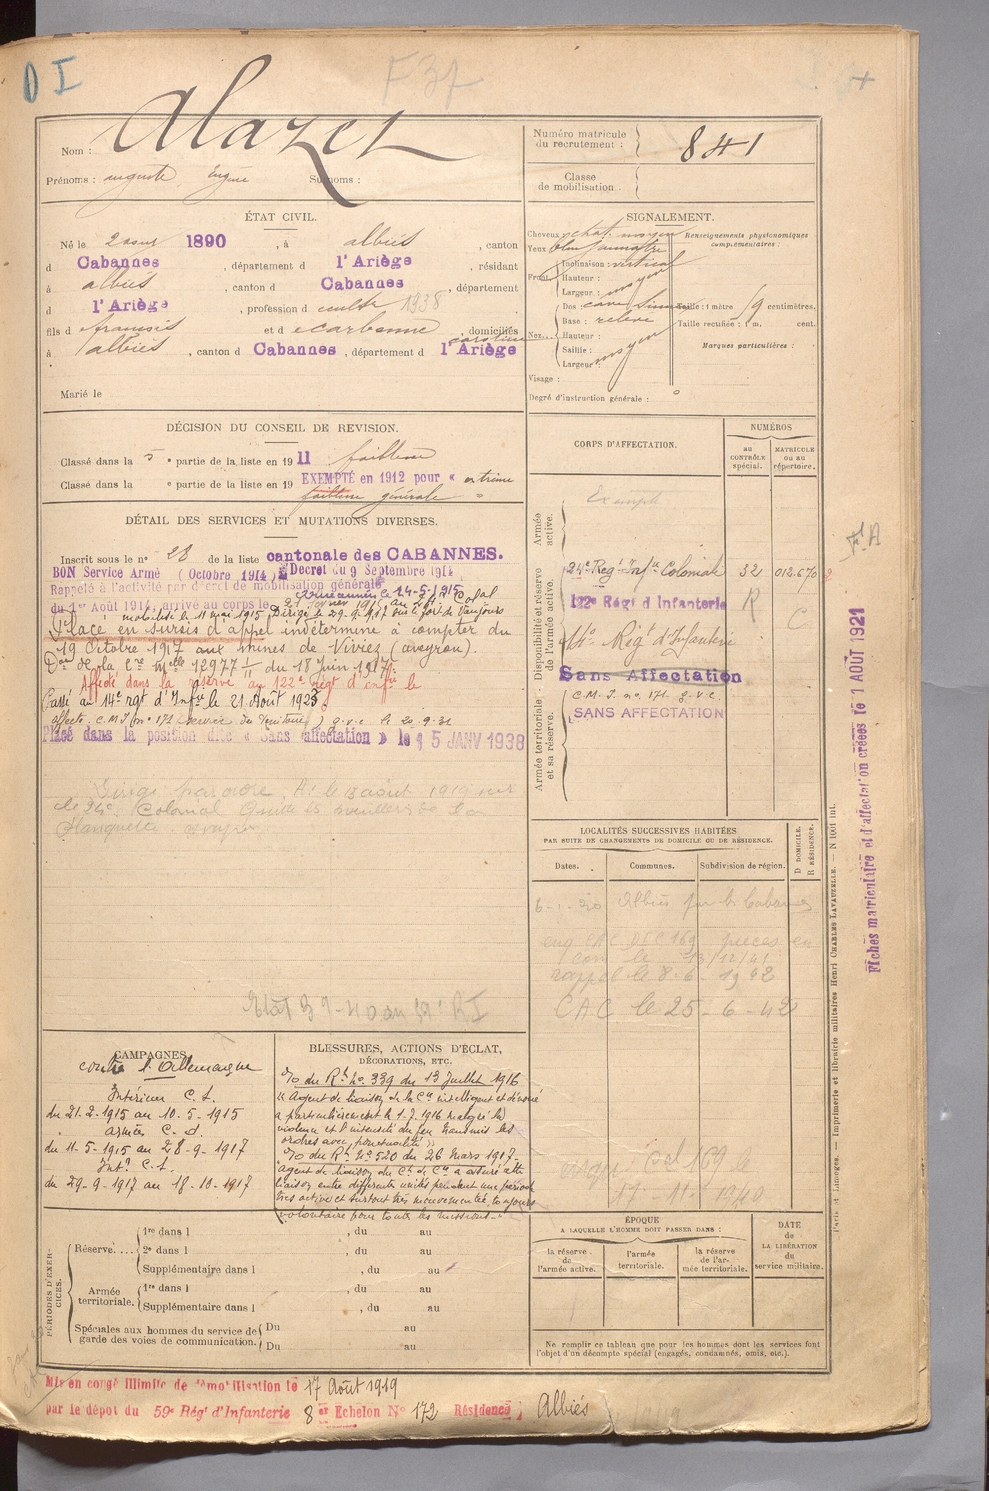 D I
F 37
Nom : Alazet
Prénoms : auguste Eugène Surnoms :
Numéro matricule du recrutement : 841
Classe de mobilisation :
ÉTAT CIVIL.
Né le 2 1890, à albiès, canton
d Cabannes, département d l'Ariège, résidant
à albiès, canton d Cabannes, département
d l'Ariège, profession d cultr 1938
fils d françois et d ecarbonne caroline, domiciliés
à albiès, canton d Cabannes, département d l'Ariège
Marié le
SIGNALEMENT.
Cheveux chat. moyen
Yeux bleu jaunâtre
Renseignements physionomiques complémentaires :
Front Inclinaison : vertical
Hauteur :
Largeur : moyen
Nez Dos : cave
Base : relevé
Hauteur :
Saillie :
Largeur : moyen
Taille : 1 mètre centimètres.
Taille rectifiée : 1 m. cent.
Marques particulières :
Visage :
Degré d'instruction générale :
DÉCISION DU CONSEIL DE REVISION.
Classé dans la 5 e partie de la liste en 1911 faiblesse
Classé dans la e partie de la liste en 19 EXEMPTÉ en 1912 pour « extrême
faiblesse générale »
DÉTAIL DES SERVICES ET MUTATIONS DIVERSES.
Inscrit sous le n° 28 de la liste cantonale des CABANNES.
BON Service Armé (Octobre 1914) Décret du 9 Septembre 1914
Rappelé à l'activité par décret de mobilisation générale
du 1er Août 1914, arrivé au corps le 21 février 1915 au Colal
mobilisé le 11 mai 1915 Dirigé le 29.9.17 sur
Placé en sursis d'appel indéterminé à compter du
19 Octobre 1917 aux mines de Viviez (aveyron).
Don de la Ce Mlle 12977 1/11 du 18 Juin 1917.
Affecté dans la réserve au 122e régt d'infie le
Passé au 14e rgt d'Infie le 21 Août 1923
affecté C.M.I n° 171 (Service du Territoire) g.v.c le 20.9.31
Placé dans la position dite « Sans affectation » le 15 JANV 1938
Dirigé par ordre le 3 août 1919 sur
le 24e Colonial Quitte
CORPS D'AFFECTATION.
NUMÉROS
au CONTRÔLE spécial.
MATRICULE ou au répertoire.
Armée active.
Exempté
Disponibilité et réserve de l'armée active.
24e Régt Infie Coloniale 32 012.670
122e Régt d'Infanterie R
14e Régt d'Infanterie C
Sans Affectation
C.M.I. n° 171. g.v.c.
SANS AFFECTATION
Armée territoriale et sa réserve.
Fiches matriculaire et d'affectation créées le 1 AOUT 1921
LOCALITÉS SUCCESSIVES HABITÉES
PAR SUITE DE CHANGEMENTS DE DOMICILE OU DE RÉSIDENCE.
Dates. Communes. Subdivision de région. D DOMICILE. R RÉSIDENCE.
6-1-20 Albiès par les Cabannes
enq CAC DEC 169 pieces en
con le 13/12/41
rappel le 8-6-1942
CAC le 25-6-42
17-11-1940
Imprimerie et librairie militaires Henri CHARLES LAVAUZELLE. — N 1001 Int.
CAMPAGNES.
contre l'Allemagne
Intérieur C.S.
du 21-2-1915 au 10-5-1915
armées C.d.
du 11-5-1915 au 28-9-1917
Intr C.S.
du 29-9-1917 au 18-10-1917
BLESSURES, ACTIONS D'ÉCLAT, DÉCORATIONS, ETC.
O/ du Rt n° 339 du 13 Juillet 1916
« Agent de liaison de la Cie intelligent et dévoué
a particulièrement le 1-7-1916 malgré la
violence et l'intensité du feu transmis les
ordres avec ponctualité »
O/ du Rt n° 520 du 26 Mars 1917 -
"agent de liaison du Ct de Cie a assuré
liaison entre différentes unités pendant une période
très active et surtout très mouvementée, toujours
volontaire pour toutes les missions."
PÉRIODES D'EXERCICES.
Réserve....
1re dans l , du au
2e dans l , du au
Supplémentaire dans l , du au
Armée territoriale.
1re dans l , du au
Supplémentaire dans l , du au
Spéciales aux hommes du service de garde des voies de communication.
Du au
Du au
ÉPOQUE
A LAQUELLE L'HOMME DOIT PASSER DANS :
la réserve de l'armée active.
l'armée territoriale.
la réserve de l'armée territoriale.
DATE de LA LIBÉRATION du service militaire.
Ne remplir ce tableau que pour les hommes dont les services font l'objet d'un décompte spécial (engagés, condamnés, omis, etc.).
Mis en congé illimité de démobilisation le 17 Août 1919
par le dépôt du 59e Régt d'Infanterie 8e Echelon N° 172 Résidence : Albiès